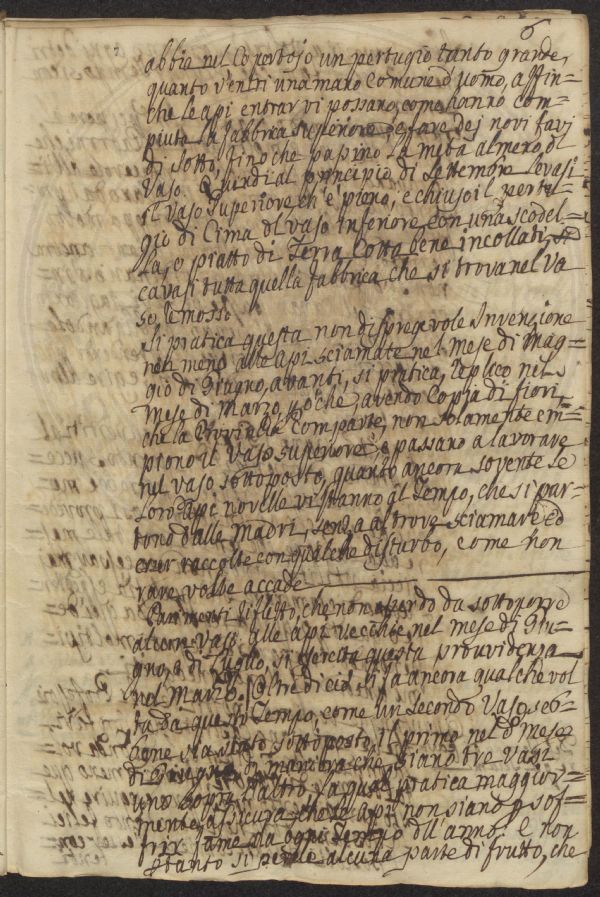 6
abbia nel Copertojo un pertugio tanto grande,
quanto v'entri una mano Comune d'uomo, affin=
che le api entrar vi possano, come hanno com=
piuta la fabbrica superiore, e fare dej novi favi
di sotto, finoche passino la metà almeno dl
Vaso. Quindi al principio di Settembre levasi
il vaso superiore ch'è pieno, e chiuso il pertu=
gio di Cima dl vaso inferiore con una scodel=
la, o piatto di Terra Cotta bene incollati, si
cavasi tutta quella fabbrica che si trova nel Va
so rimosso
Si pratica questa non dispregevole Invenzione
nel meno alle api sciamate nel mese di Mag=
gio di Giugno, avanti, si pratica, replico nel
mese di Marzo, poche, avendo Copia di fiori,
che la Provincia Comparte, non solamente em=
piono il vaso superiore, e passano a lavorare
nel vaso sottoposto, quanto ancora sovente le
loro api novelle vi stanno al Tempo, che si par=
tono dalle Madri, senza altrove sciamare ed
esser raccolte con qualche disturbo, come non
rare volte accade
Parimenti di frutto, che non perdo da sottoporre
alcun Vaso alle api vecchie nel mese di Giu=
gno, o di Luglio, si esercita questa provvidenza
nel Marzo. Oltre di ciò si fa ancora qualche vol
ta da questo Tempo, come un secondo Vaso seb=
bene sia stato sottoposto il primo nel do mese
di Giugno di maniera che siano tre Vasi
uno sopra l'altro, la qual pratica maggior=
mente assicura, che le api non siano p sof=
frir fame da ogni Tempo dell'anno. e non
ptanto si perde alcuna parte di frutto, che